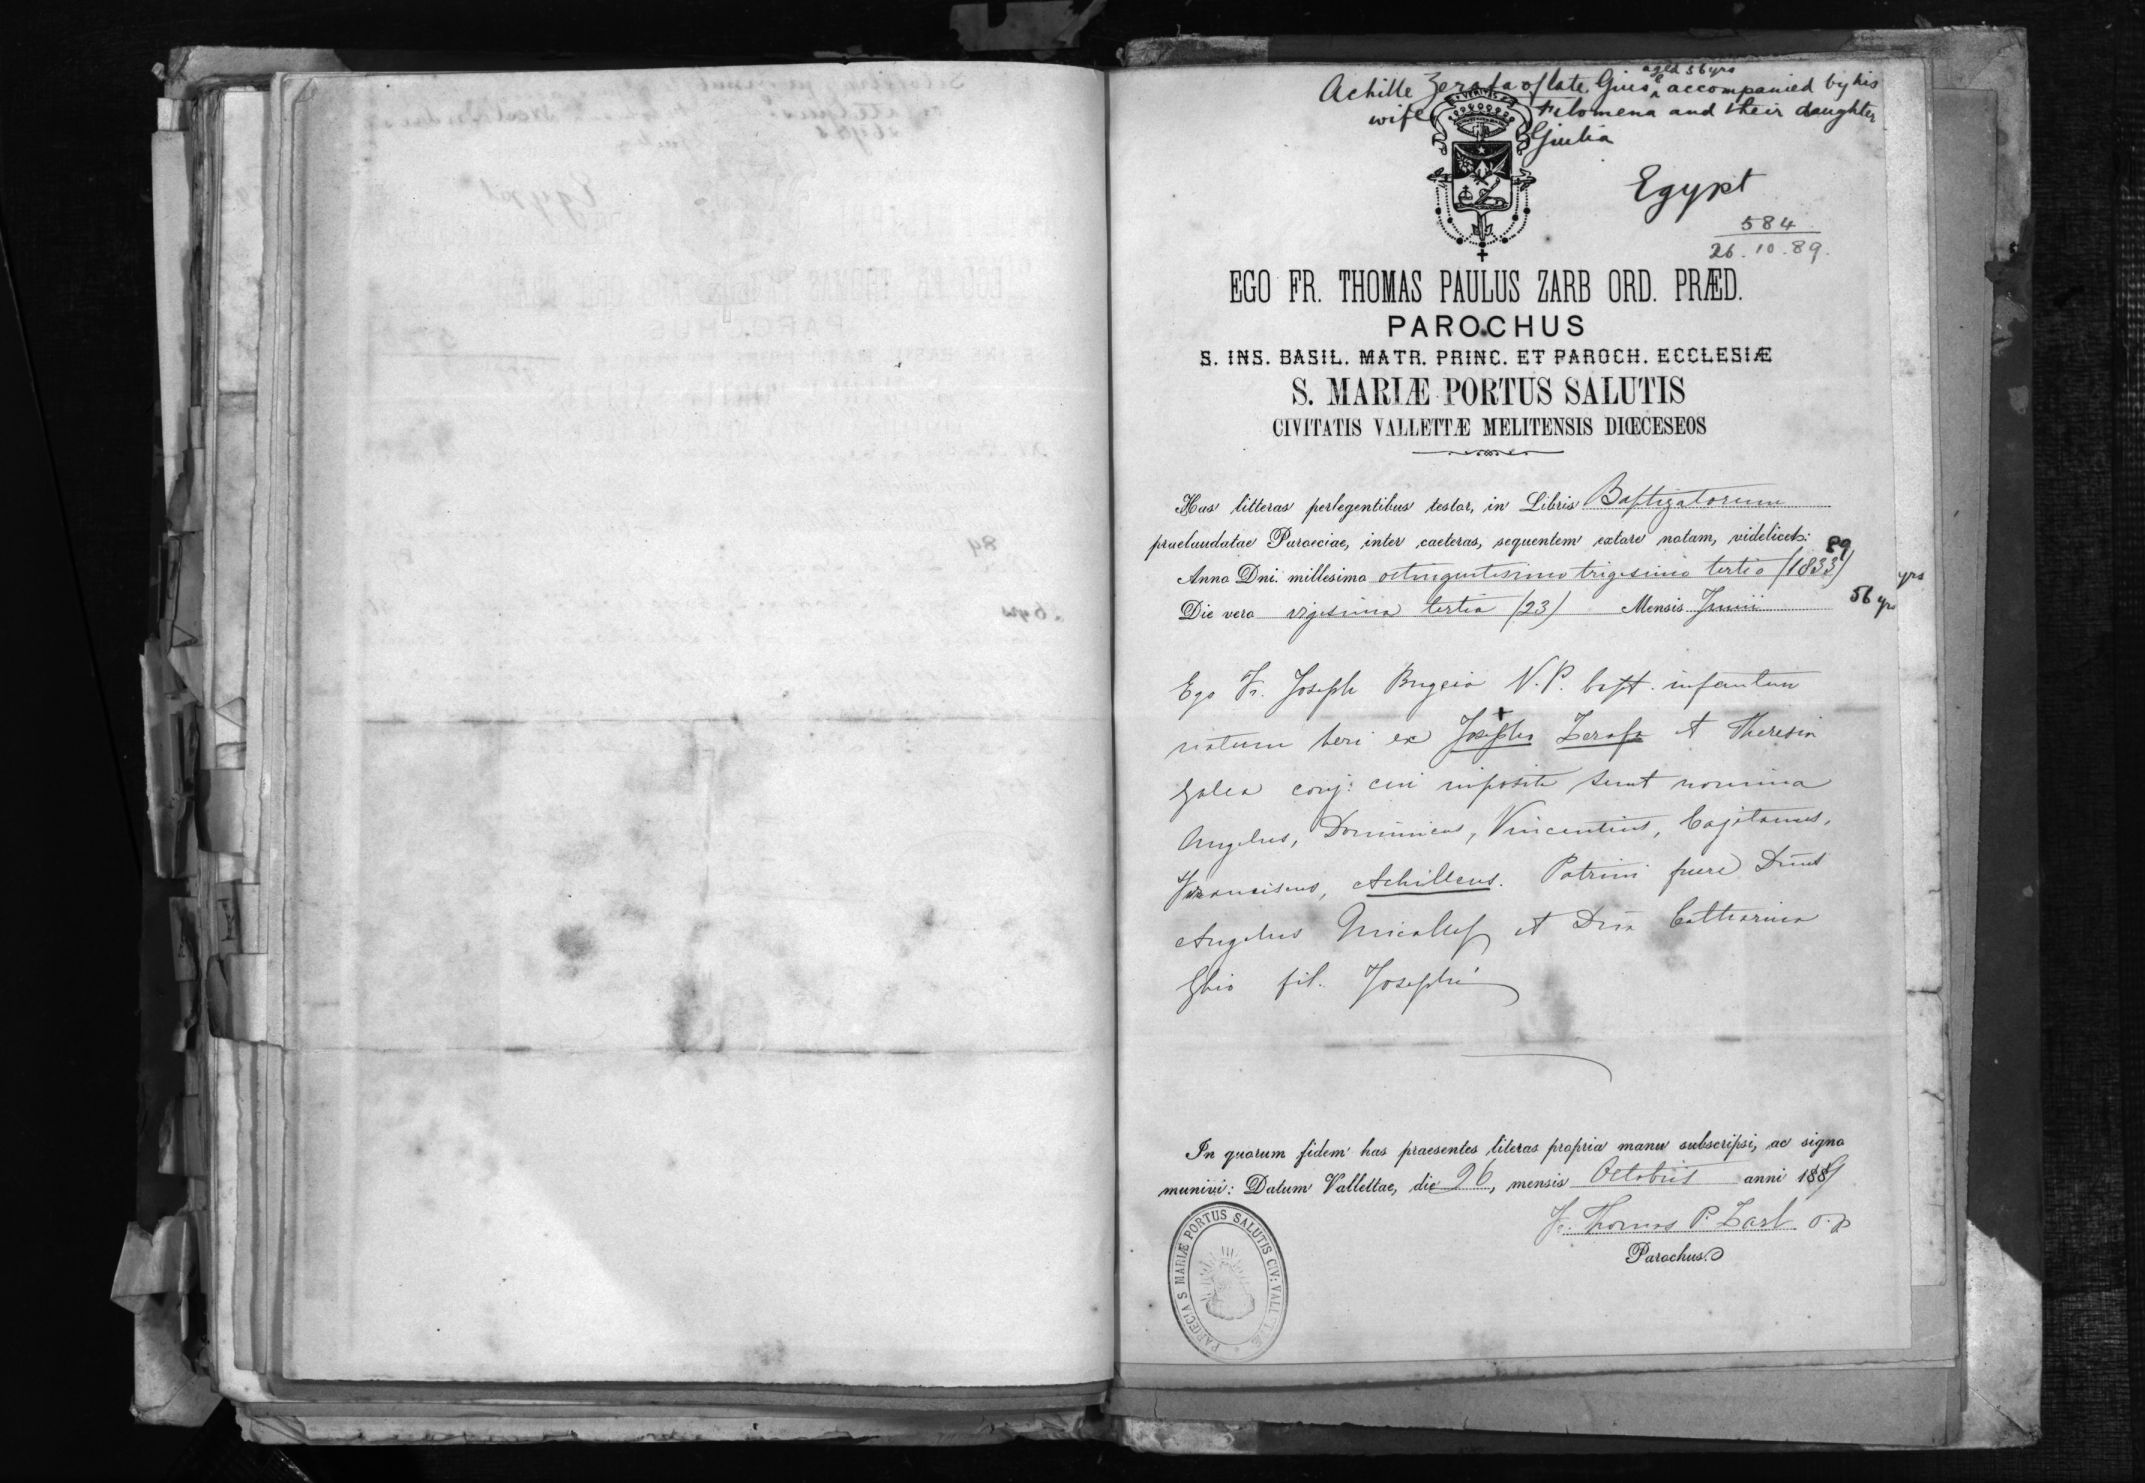 aged 56 yrs
Achille Zerafa of late Gius^e accompanied by his
wife Filomena and their daughter
Giulia
VERITAS
Egypt
584
26.10.89.
EGO FR. THOMAS PAULUS ZARB ORD. PRÆD.
PAROCHUS
S. INS. BASIL. MATR. PRINC. ET PAROCH. ECCLESIÆ
S. MARIÆ PORTUS SALUTIS
CIVITATIS VALLETTÆ MELITENSIS DIŒCESEOS
Has litteras perlegentibus testor, in Libris Baptizatorum
praelaudatae Paraeciae, inter caeteras, sequentem extare notam, videlicet:
89
Anno Dni. millesimo octingentesimo trigesimo tertio (1833)
yrs
Die vero vigesima tertia (23) Mensis Junii
56 yrs
Ego Fr. Joseph Bugeia V. P. bapt. infantem
natum heri ex Josepho Zerafa et Theresia
Galea conj: cui imposita sunt nomina
Angelus, Dominicus, Vincentius, Cajetanus,
Franciscus, Achilleus. Patrini fuere Dnus
Angelus Micallef et Dna Catharina
Ghio fil. Josephi
In quorum fidem has praesentes literas propria manu subscripsi, ac signo
munivi: Datum Vallettae, die 26, mensis Octobris anni 1889
Fr. Thomas P. Zarb O. P.
Parochus.
PARŒCIA S. MARIÆ PORTUS SALUTIS CIV: VALLETTÆ